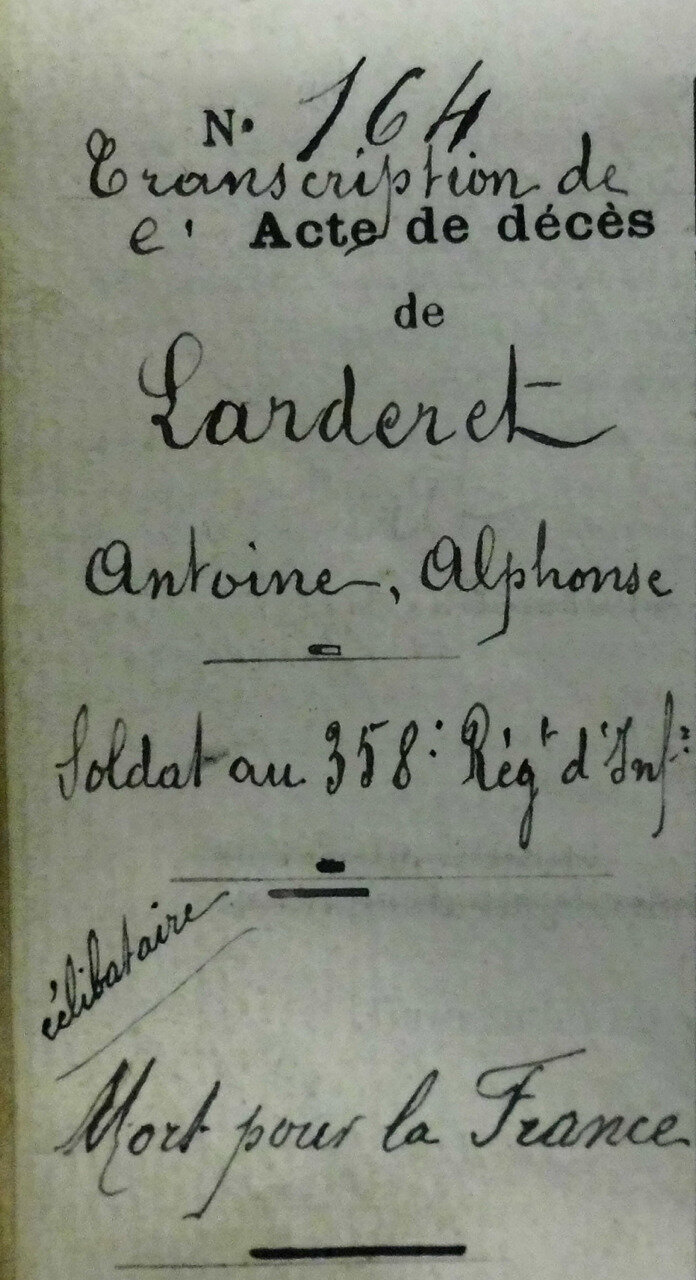 N° 164
Transcription de
l' Acte de décès
de
Larderet
Antoine, Alphonse
Soldat au 358: Rég^t d'Inf^ie
célibataire
Mort pour la France